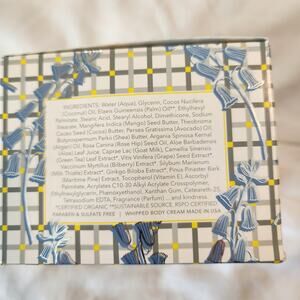 INGREDIENTS: Water (Aqua), Glycerin, Cocos Nucifera
(Coconut) Oil, Elaeis Guineensis (Palm) Oil**, Ethylhexyl
Palmitate, Stearic Acid, Stearyl Alcohol, Dimethicone, Sodium
Stearate, Mangifera Indica (Mango) Seed Butter, Theobroma
Cacao Seed (Cocoa) Butter, Persea Gratissima (Avocado) Oil,
Butyrospermum Parkii (Shea) Butter, Argania Spinosa Kernel
(Argan) Oil, Rosa Canina (Rose Hip) Seed Oil, Aloe Barbadensis
(Aloe) Leaf Juice, Caprae Lac (Goat Milk), Camellia Sinensis
(Green Tea) Leaf Extract*, Vitis Vinifera (Grape) Seed Extract,
Vaccinium Myrtillus (Bilberry) Extract*, Silybum Marianum
(Milk Thistle) Extract*, Ginkgo Biloba Extract*, Pinus Pinaster Bark
(Maritime Pine) Extract, Tocopherol (Vitamin E), Ascorbyl
Palmitate, Acrylates C10-30 Alkyl Acrylate Crosspolymer,
Ethylhexylglycerin, Phenoxyethanol, Xanthan Gum, Ceteareth-25,
Tetrasodium EDTA, Fragrance (Parfum) ... and kindness.
*CERTIFIED ORGANIC **SUSTAINABLE SOURCE, RSPO CERTIFIED
PARABEN & SULFATE FREE | WHIPPED BODY CREAM MADE IN USA